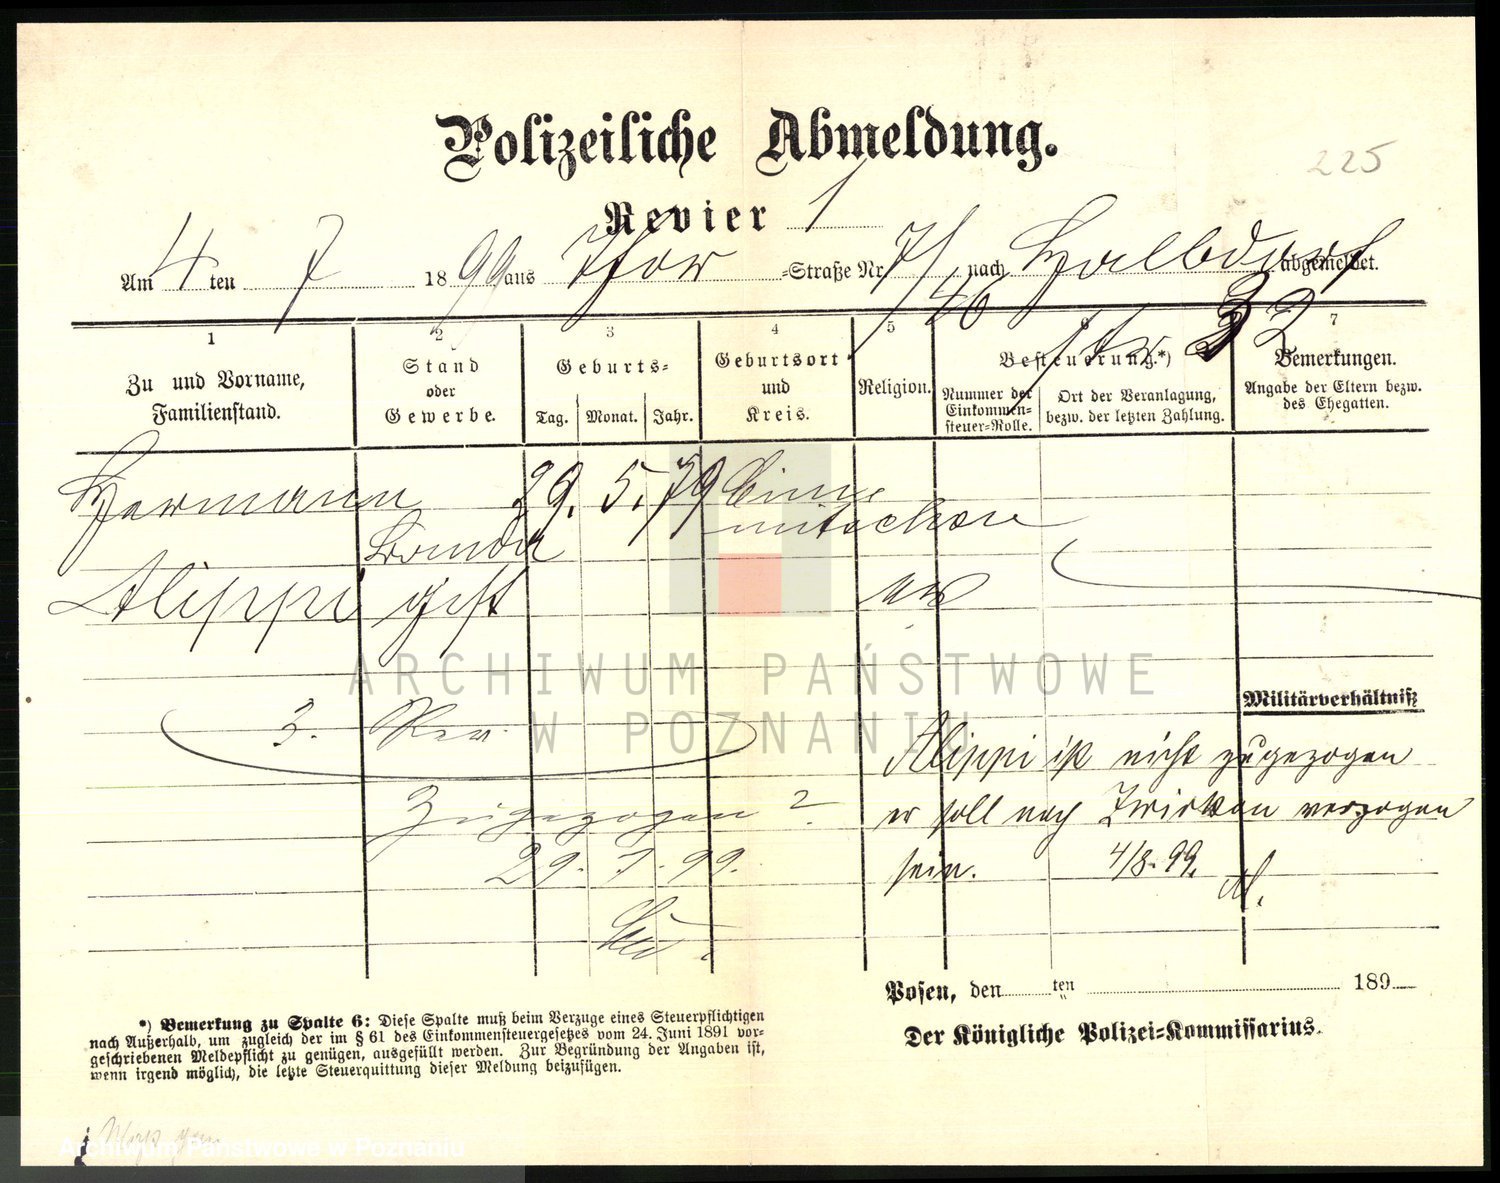 Polizeiliche Abmeldung.
225
Revier 1
Am 4 ten 7 1899 aus Thor =Straße Nr. 7/ nach Halbdorf abgemeldet.
46 str 32
1 2 3 4 5 6 7
Zu und Vorname, Familienstand.
Stand oder Gewerbe.
Geburts=
Tag. Monat. Jahr.
Geburtsort und Kreis.
Religion.
Besteuerung.*)
Nummer der Einkommen=steuer=Rolle.
Ort der Veranlagung, bezw. der letzten Zahlung.
Bemerkungen.
Angabe der Eltern bezw. des Ehegatten.
Hermann 29. 5. 79
Alippi
3. Rev.
Militärverhältniß
Alippi ist nicht zugezogen
Zugezogen ?
er soll nach Zwickau verzogen
29. 7. 99.
sein. 4/8. 99. M.
Posen, den ten 189
Der Königliche Polizei=Kommissarius.
*) Bemerkung zu Spalte 6: Diese Spalte muß beim Verzuge eines Steuerpflichtigen
nach Außerhalb, um zugleich der im § 61 des Einkommensteuergesetzes vom 24. Juni 1891 vor=
geschriebenen Meldepflicht zu genügen, ausgefüllt werden. Zur Begründung der Angaben ist,
wenn irgend möglich, die letzte Steuerquittung dieser Meldung beizufügen.
ARCHIWUM PAŃSTWOWE
W POZNANIU
Archiwum Państwowe w Poznaniu